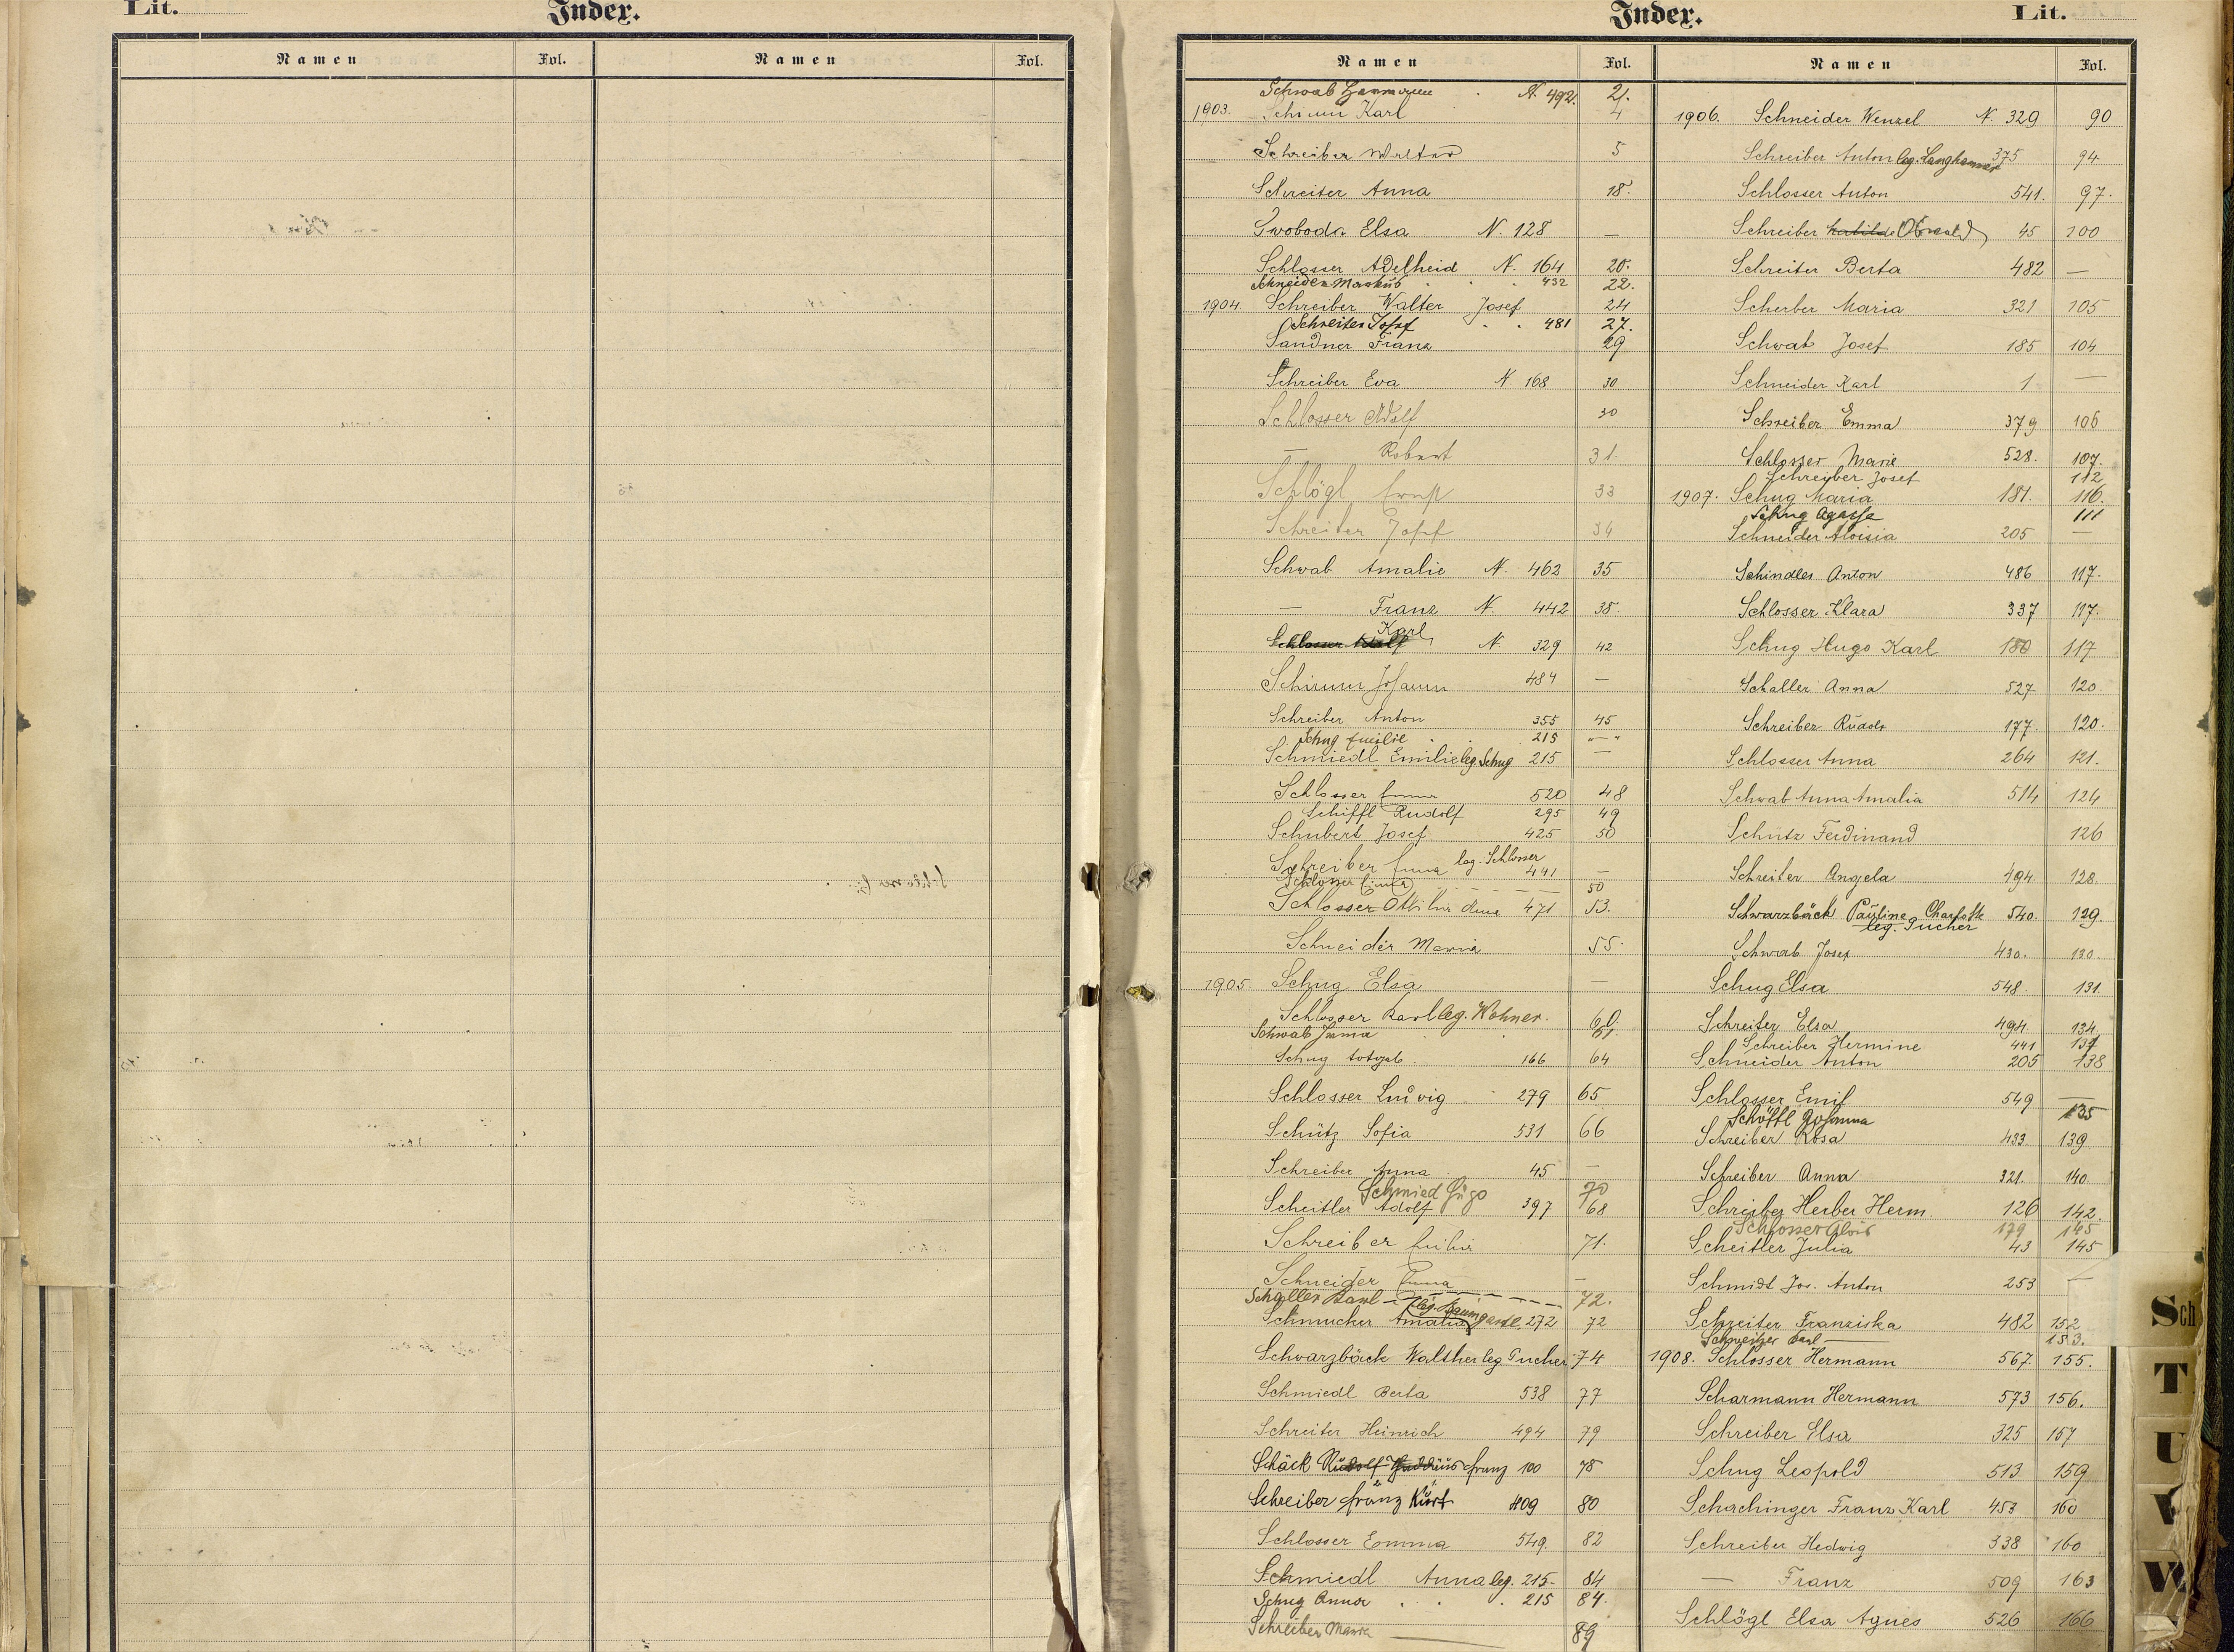 Lit.
Index.
Namen Fol. Namen Fol.
Index.
Lit.
Namen Fol. Namen Fol.
Schwab Hermann N. 492. 21.
1903. Schimm Karl 4
Schreiber Walter 5
Schreiter Anna 18.
Swoboda Elsa N. 128 —
Schlosser Adelheid N. 164 20.
Schneider Markus 432 22.
1904. Schreiber Walter Josef 24
Schreiter Josef 481 27.
Sandner Franz 29
Schreiber Eva N. 168 30
Schlosser Adolf 30
— Robert 31.
Schlögl Ernst 33
Schreiter Josef 34
Schwab Amalie N. 462 35
— Franz N. 442 38.
Schlosser Adolf Karl N. 329 42
Schimm Johann 484 —
Schreiber Anton 355 45
Schug Emilie 215 „—„
Schmiedl Emilie leg. Schug 215 —
Schlosser Emma 520 48
Schiffl Rudolf 295 49
Schubert Josef 425 50
Schreiber Emma leg. Schlosser 441 —
Schlosser Emma 50
Schlosser Ottilie Anna 471 53.
Schneider Maria 55.
1905. Schug Elsa —
Schlosser Karl leg. Wohner. 60.
Schwab Emma 61.
Schug totgeb. 166 64
Schlosser Ludwig 279 65
Schütz Sofia 531 66
Schreiber Anna 45 —
Schmied Hugo 70
Scheitler Adolf 397 68
Schreiber Emilie 71.
Schneider Emma —
Schaller Karl 72.
Schmucker Amalia leg. Baumgartl. 272 72
Schwarzbäck Walther leg. Pucher 74
Schmiedl Berta 538 77
Schreiter Heinrich 494 79
Schäck Rudolf Thaddäus Franz 100 78
Schreiber Franz Kurt 409 80
Schlosser Emma 549. 82
Schmiedl Anna leg. 215. 84
Schug Anna 215 84.
Schreiber Maria — 89
1906. Schneider Wenzel N. 329 90
Schreiber Anton leg. Langhammer 375 94
Schlosser Anton 541. 97.
Schreiber Matilde Oswald 45 100
Schreiter Berta 482 —
Scherber Maria 321 105
Schwab Josef 185 104
Schneider Karl 1 —
Schreiber Emma 379 106
Schlosser Marie 528. 107.
Schreiber Josef 112
1907. Schug Maria 181. 116.
Schug Agathe 111
Schneider Aloisia 205 —
Schindler Anton 486 117.
Schlosser Klara 337 117.
Schug Hugo Karl 180 117
Schaller Anna 527 120
Schreiber Rudolf 177. 120.
Schlosser Anna 264 121.
Schwab Anna Amalia 514 124
Schütz Ferdinand 126
Schreiter Angela 494 128.
Schwarzbäck Pauline Charlotte 540. 129.
leg. Pucher
Schwab Josef 430. 130.
Schug Elsa 548 131.
Schreiter Elsa 494 134
Schreiber Hermine 441 137
Schneider Anton 205 138
Schlosser Emil 549 —
Schöffl Johanna 135
Schreiber Rosa 433. 139
Schreiber Anna 321. 140
Schreiber Herber Herm. 126 142.
Schlosser Alois 179 145
Scheitler Julia 43 145
Schmidt Jos. Anton 253 —
Schreiter Franziska 482 152
Schweitzer Karl — 153.
1908. Schlosser Hermann 567. 155.
Scharmann Hermann 573 156.
Schreiber Elsa 325 157
Schug Leopold 513 159
Schachinger Franz Karl 453 160
Schreiber Hedwig 338 160
— Franz 509 163
Schlögl Elsa Agnes 526 166
Sch
T
U
V
W